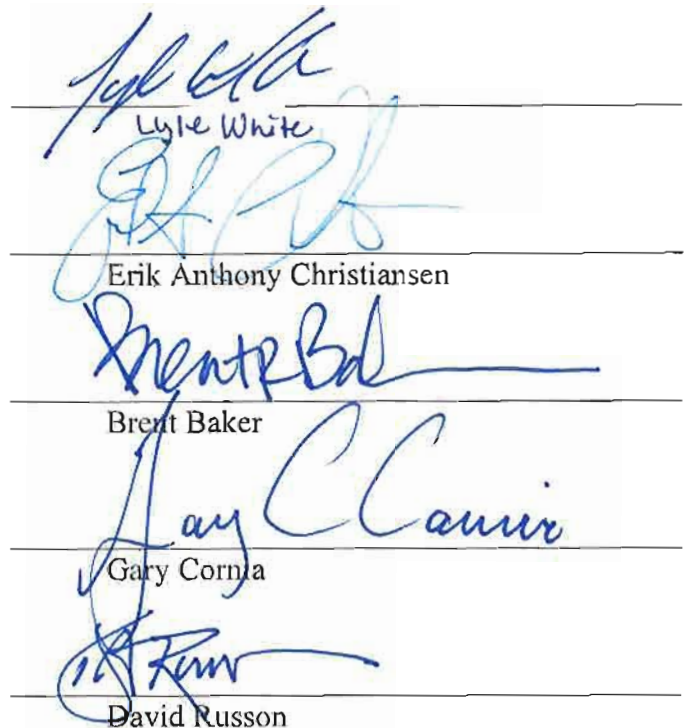 Lyle White
Erik Anthony Christiansen
Brent R Bak
Brent Baker
Gary C Cornia
Gary Cornia
David Russon